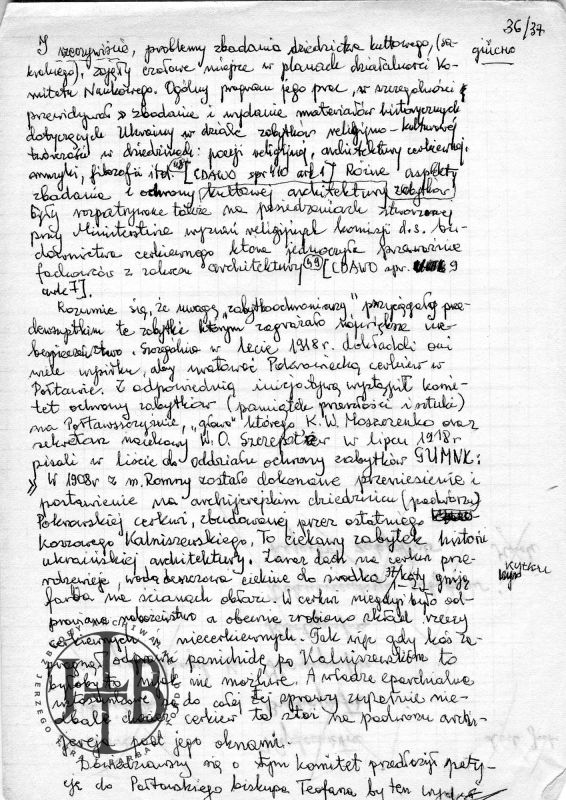 36/37
I rzeczywiście, problemy zbadania dziedzictwa kultowego, (sa-
głucho
kralnego), zajęły czołowe miejsce w planach działalności Ko-
mitetu Naukowego. Ogólny program jego prac, w szczególności
przewidywał zbadanie i wydanie materiałów historycznych
dotyczących Ukrainy w dziale zabytków religijno-kulturowej
twórczości w dziedzinach: poezji religijnej, architektury cerkiewnej,
muzyki, filozofii itd. [CDAWO spr. 10 ark 1] Różne aspekty
zbadania i ochrony kultowej architektury zabytków
były rozpatrywane także na posiedzeniach stworzonej
przy Ministerstwie wyznań religijnych komisji d.s. bu-
downictwa cerkiewnego która jednoczyła przeważnie
fachowców z zakresu architektury 49 [CDAWO spr. 9
ark 7].
Rozumie się, że uwagę "zabytkoochroniarzy" przyciągały prze-
dewszystkim te zabytki którym zagrażało największe nie-
bezpieczeństwo. Szczególnie w lecie 1918 r. dokładali oni
wiele wysiłku, aby uratować Pokrowiecką cerkiew w
Połtawie. Z odpowiednią inicjatywą wystąpił komi-
tet ochrony zabytków (pamiątek przeszłości i sztuki)
na Połtawszczyźnie, "głowa" którego K. W. Moszczenko oraz
sekretarz naukowy W. O. w lipcu 1918 r
pisali w liście do oddziału ochrony zabytków GUMNK:
"W 1908 r z m. Romny zostało dokonane przeniesienie i
postawienie na archijerejskim dziedzińcu (podwórzu)
Pokrowskiej cerkwi, zbudowanej przez ostatniego
koszowego Kalniszewskiego. To ciekawy zabytek historii
ukraińskiej architektury. Zaraz dach na cerkwi prze-
rdzewieje, woda deszczowa cieknie do środka i kąty gniją
farba na ścianach obłazi. W cerkwi niegdyś było od-
prawiane nabożeństwo a obecnie zrobiono skład rzeczy
cerkiewnych i niecerkiewnych. Tak więc gdy ktoś za-
pragnął odprawić panichidę po Kalniszewskim to
byłoby to nie możliwe. A władze eparchialne
ustosunkowane do całej tej sprawy zupełnie nie-
dbale chociaż cerkiew ta stoi na podwórzu archi-
jereja pod jego oknami.
Dowiedziawszy się o tym komitet przedłożył petyc-
je do Połtawskiego biskupa Teofana by ten